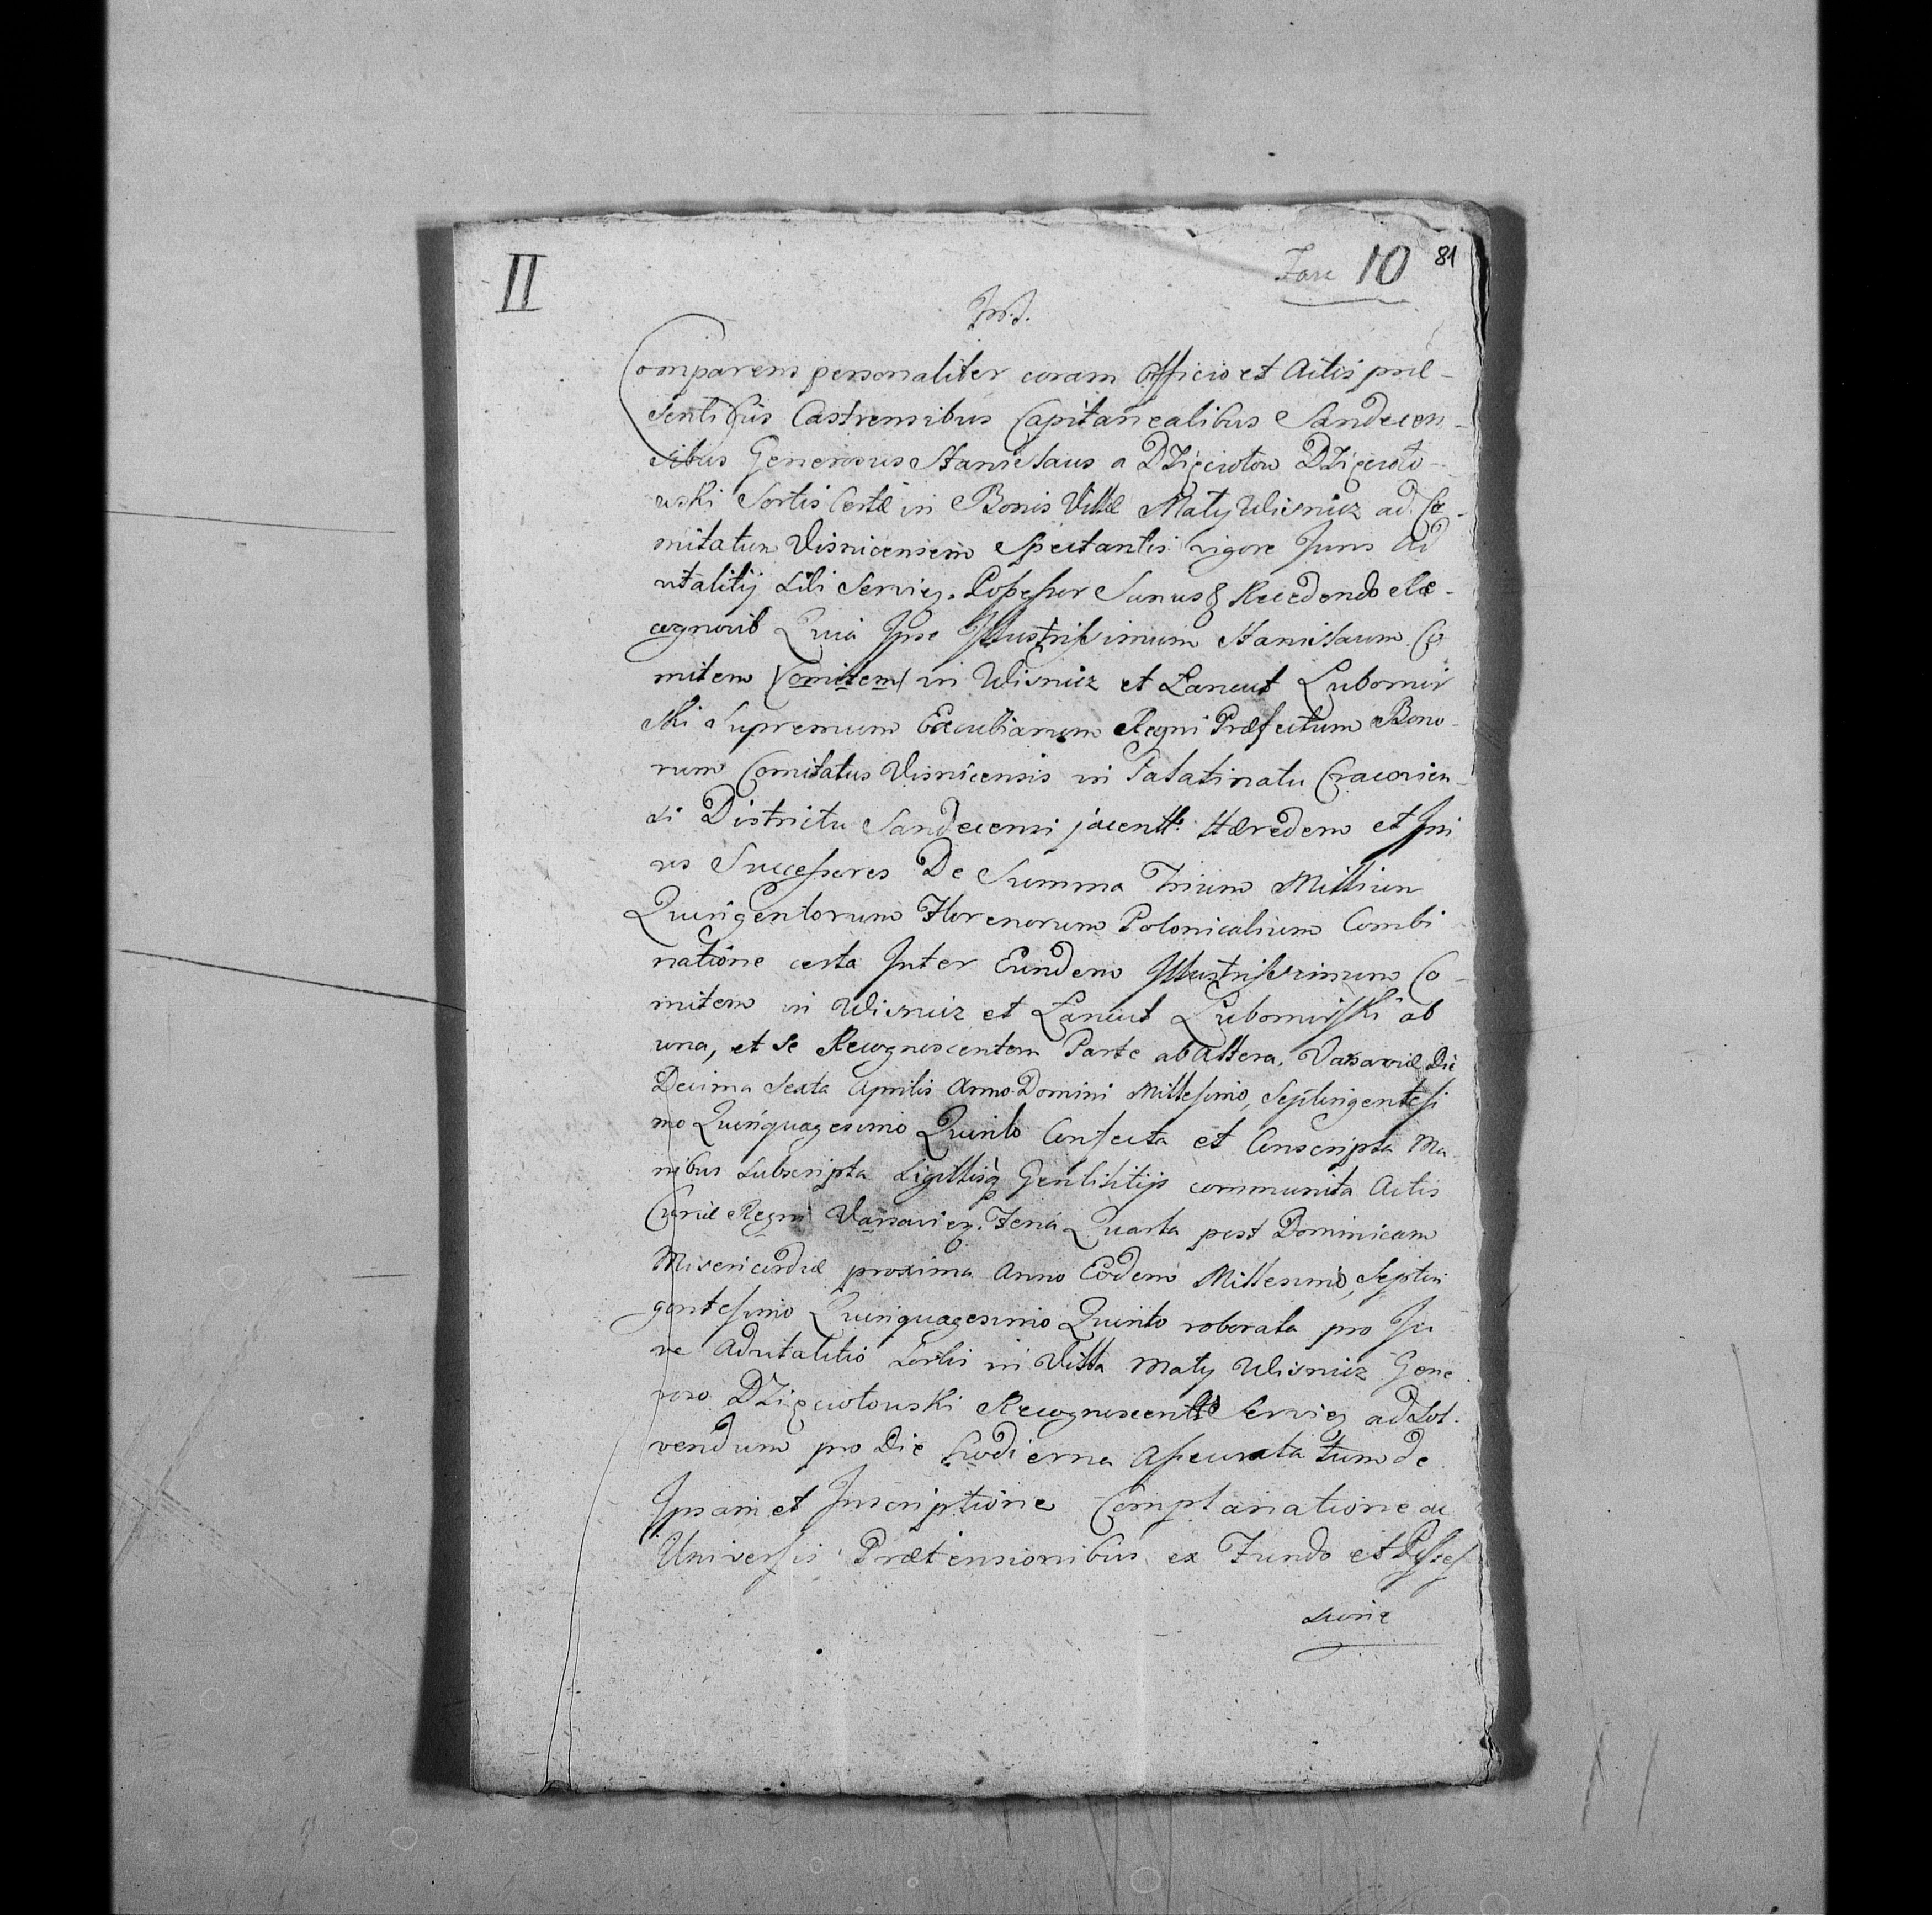 II
Fasc 10 81
Comparens personaliter coram Officio et Actis præ-
sentibus Castrensibus Capitanealibus Sandecen-
sibus Generosus Stanislaus a Dzięciołow Dzięcioło-
wski Sortis Certæ in Bonis Villæ Mały Wisnicz ad Co-
mitatum Visnicensem Spectantis vigore Juris Ad
vitalitij Sibi Servieñ. Possessor Sanus & Recedendo Re-
cognovit Quia Ipse Illustrissimum Stanislaum Co
mitem Comitem in Wisnicz et Łancut Lubomir
ski Supremum Excubiarum Regni Præfectum Bono-
rum Comitatus Visnicensis in Palatinatu Cracovien-
si Districtu Sandecensi jacentt. Hæredem et Ipsi
us Successores De Summa Trium Millium
Quingentorum Florenorum Polonicalium Combi
natione certa Inter Eundem Illustrissimum Co-
mitem in Wisnicz et Łancut Lubomirski ab
una, et se Recognoscentem Parte ab Altera, Varsaviæ Die
Decima Sexta Aprilis Anno Domini Millesimo, Septingentesi
mo Quinquagesimo Quinto Confecta et Conscripta Ma-
nibus Subscripta Sigillisq Gentilitijs communita Actis
Curiæ Regni Varsavieñ. Feria Quarta post Dominicam
Misericordiæ proxima Anno Eodem Millesimo, Septin
gentesimo Quinquagesimo Quinto roborata pro Ju
re Advitalitio Sortis in Villa Mały Wisnicz Gene
roso Dzięciołowski Recognoscenti Servieñ ad Sol-
vendum pro Die hodierna Assecurata tum de
Ipsamet Inscriptione Complanatione ac
Universis Prætensionibus ex Fundo et Posses
sione